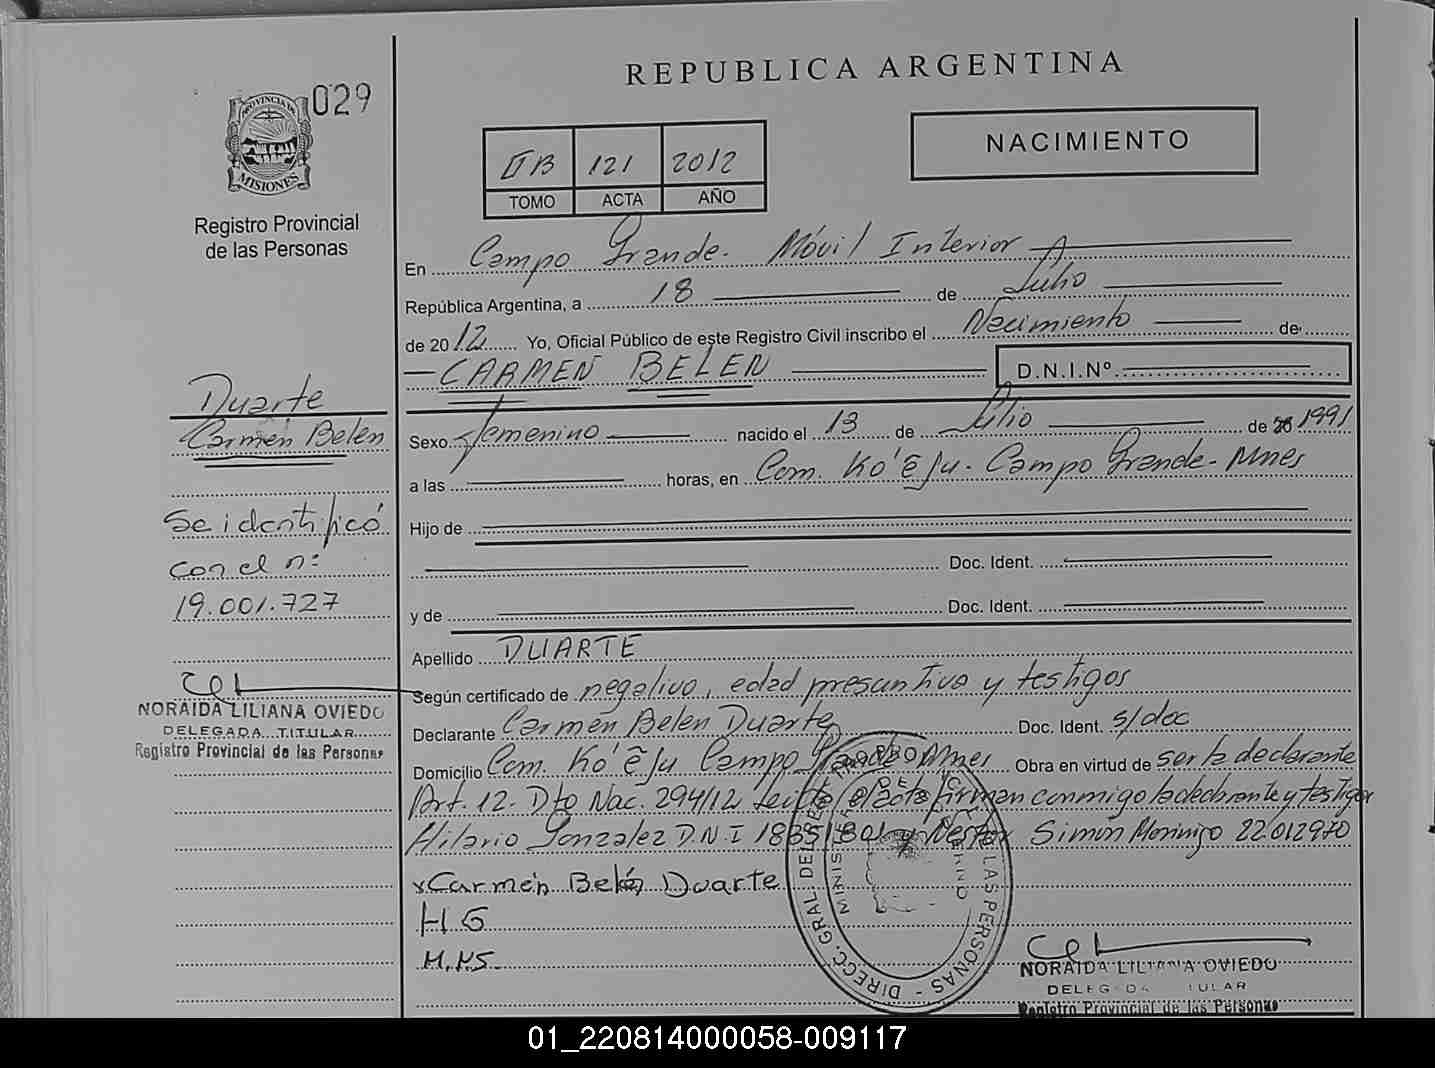 029
PROVINCIA DE
MISIONES
Registro Provincial
de las Personas
REPUBLICA ARGENTINA
NACIMIENTO
II B 121 2012
TOMO ACTA AÑO
En Campo Grande. Móvil Interior
República Argentina, a 18 de Julio
de 2012 Yo, Oficial Público de este Registro Civil inscribo el Nacimiento de
CARMEN BELEN D.N.I.Nº
Duarte
Carmen Belen
Sexo femenino nacido el 13 de Julio de 1991
a las horas, en Com. Ko'ẽ Ju. Campo Grande - Mnes
Se identificó
con el n:
19.001.727
Hijo de
Doc. Ident.
y de Doc. Ident.
Apellido DUARTE
Según certificado de negativo, edad presuntiva y testigos
NORAIDA LILIANA OVIEDO
DELEGADA TITULAR
Registro Provincial de las Personas
Declarante Carmen Belen Duarte Doc. Ident. s/doc
Domicilio Com. Ko'ẽ Ju Campo Grande Mnes Obra en virtud de ser la declarante
Art. 12. Dto Nac. 294/12 Leida el acta firman conmigo la declarante y testigos
Hilario Gonzalez D.N.I 18851801 y Nestor Simon Morinigo 22.012970
x Carmen Belén Duarte
H G
M.NS.
DIRECC. GRAL. DEL REG. PROV. DE LAS PERSONAS
NORAIDA LILIANA OVIEDO
DELEGADA TITULAR
Registro Provincial de las Personas
01_220814000058-009117